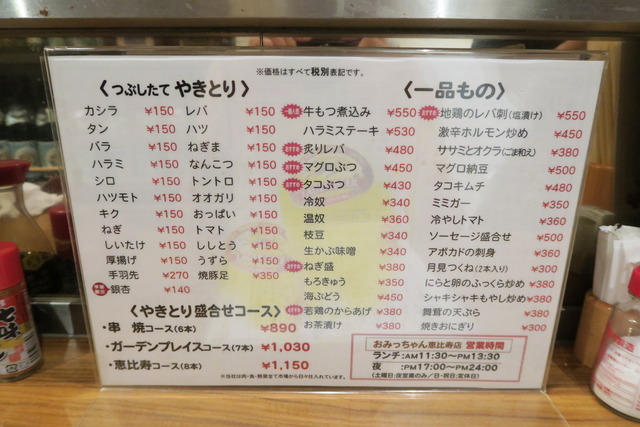 ※価格はすべて税別表記です。
〈つぶしたて やきとり〉
カシラ ¥150 レバ ¥150
タン ¥150 ハツ ¥150
バラ ¥150 ねぎま ¥150
ハラミ ¥150 なんこつ ¥150
シロ ¥150 トントロ ¥150
ハツモト ¥150 オオガリ ¥150
キク ¥150 おっぱい ¥150
ねぎ ¥150 トマト ¥150
しいたけ ¥150 ししとう ¥150
厚揚げ ¥150 うずら ¥150
手羽先 ¥270 焼豚足 ¥350
銀杏 ¥140
〈やきとり盛合せコース〉
・串 焼コース(6本) ¥890
・ガーデンプレイスコース(7本) ¥1,030
・恵比寿コース(8本) ¥1,150
〈一品もの〉
牛もつ煮込み ¥550
ハラミステーキ ¥530
炙りレバ ¥480
マグロぶつ ¥450
タコぶつ ¥430
冷奴 ¥340
温奴 ¥360
枝豆 ¥340
生かぶ味噌 ¥340
ねぎ盛 ¥380
もろきゅう ¥350
海ぶどう ¥450
若鶏のからあげ ¥380
お茶漬け ¥380
地鶏のレバ刺(塩漬け) ¥550
激辛ホルモン炒め ¥450
ササミとオクラ(ごま和え) ¥380
マグロ納豆 ¥500
タコキムチ ¥480
ミミガー ¥350
冷やしトマト ¥360
ソーセージ盛合せ ¥500
アボカドの刺身 ¥360
月見つくね(2本入り) ¥300
にらと卵のふっくら炒め ¥380
シャキシャキもやし炒め ¥380
舞茸の天ぷら ¥380
焼きおにぎり ¥300
おみっちゃん恵比寿店 営業時間
ランチ:AM11:30〜PM13:30
夜 :PM17:00〜PM24:00
(土曜日:夜営業のみ/日・祝日:定休日)